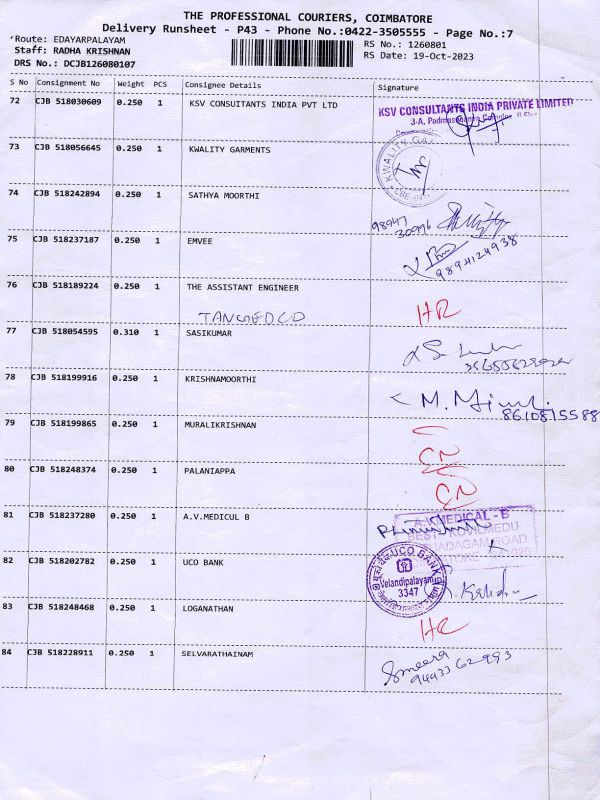 THE PROFESSIONAL COURIERS, COIMBATORE
Delivery Runsheet - P43 - Phone No.:0422-3505555 - Page No.:7
Route: EDAYARPALAYAM
Staff: RADHA KRISHNAN
DRS No.: DCJB126080107
RS No.: 1260801
RS Date: 19-Oct-2023
S No Consignment No Weight PCS Consignee Details Signature
72 CJB 518030609 0.250 1 KSV CONSUITANTS INDIA PVT LTD
KSV CONSULTANTS INDIA PRIVATE LIMITED
3-A,
73 CJB 518056645 0.250 1 KWALITY GARMENTS
KWALITY
74 CJB 518242894 0.250 1 SATHYA MOORTHI
98947
30996
75 CJB 518237187 0.250 1 EMVEE
9894124938
76 CJB 518189224 0.250 1 THE ASSISTANT ENGINEER HR
TANGEDCO
77 CJB 518054595 0.310 1 SASIKUMAR
78 CJB 518199916 0.250 1 KRISHNAMOORTHI
M.
8610815588
79 CJB 518199865 0.250 1 MURALIKRISHNAN
CN
80 CJB 518248374 0.250 1 PALANIAPPA
CN
81 CJB 518237280 0.250 1 A.V.MEDICUL B
MEDICAL - B
ROAD
82 CJB 518202782 0.250 1 UCO BANK
UCO BANK
Velandipalayam
3347
83 CJB 518248468 0.250 1 LOGANATHAN
84 CJB 518228911 0.250 1 SELVARATHAINAM
Smeera
9443362993